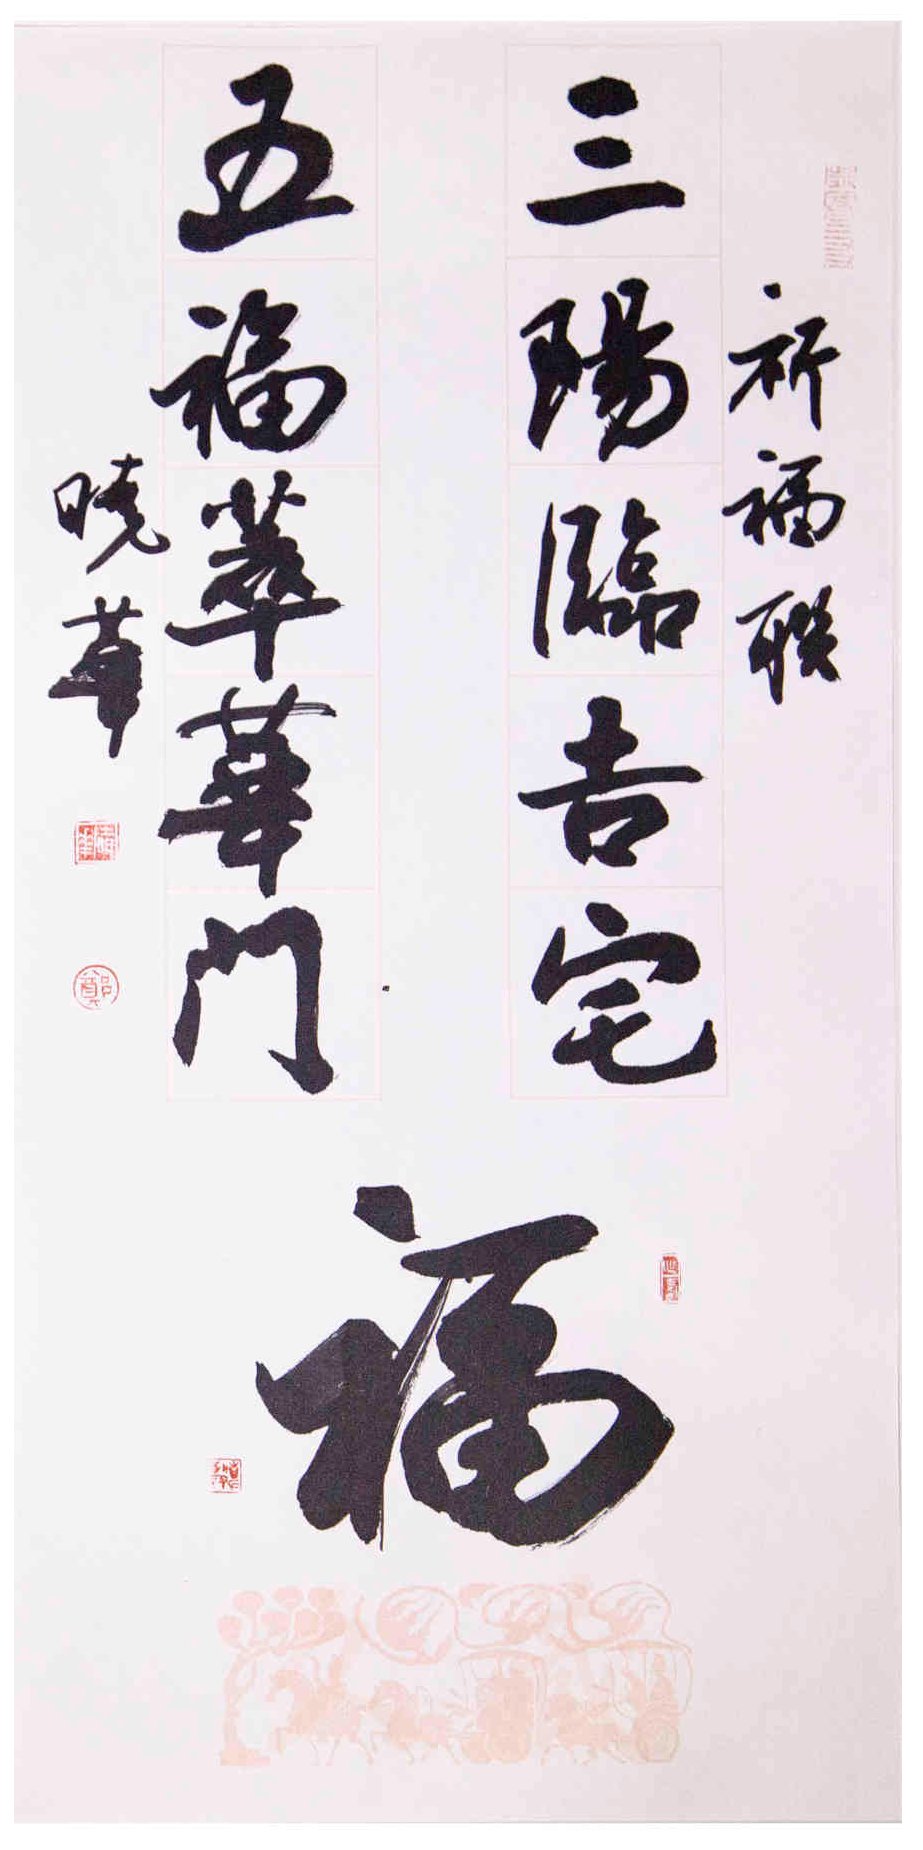 祈福联
三陽臨吉宅
五福萃華门
曉華
福
鄭